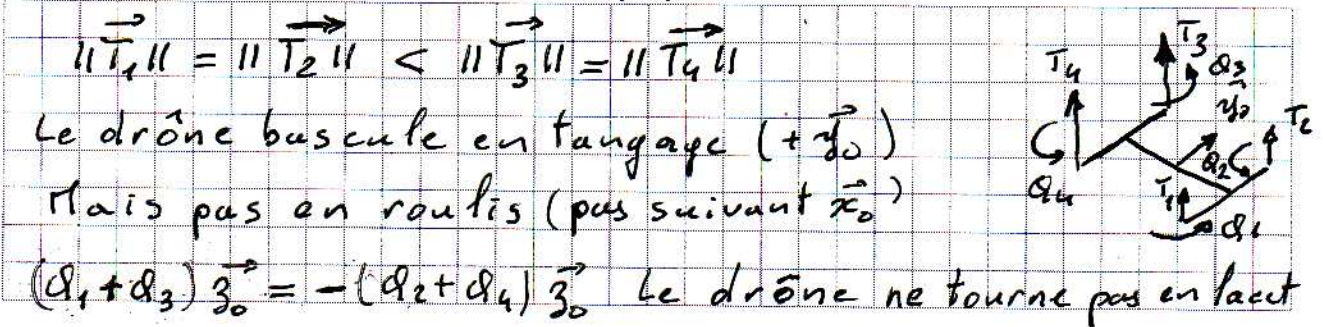 ||T₁|| = ||T₂|| < ||T₃|| = ||T₄||
Le drône bascule en tangage (+ y₀)
Mais pas en roulis (pas suivant x₀)
(Q₁ + Q₃) z₀ = -(Q₂ + Q₄) z₀ Le drône ne tourne pas en lacet
T₃
T₄
Q₃
y₀
Q₂
Q₄
T₁
Q₁